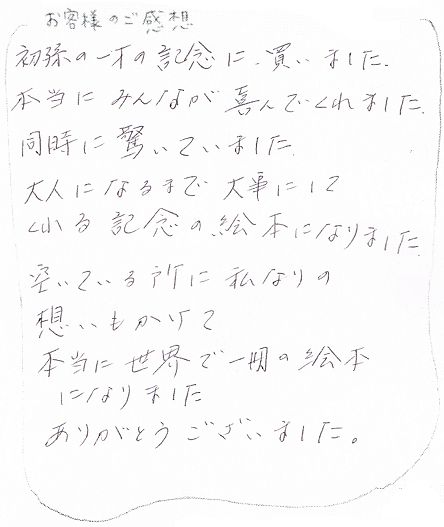 お客様のご感想
初孫の一才の記念に、買いました。
本当に みんなが 喜んでくれました。
同時に 驚いていました。
大人になるまで 大事にして
くれる 記念の 絵本になりました。
空いている所に 私なりの
想いもかけて
本当に 世界で 一冊の 絵本
になりました
ありがとうございました。